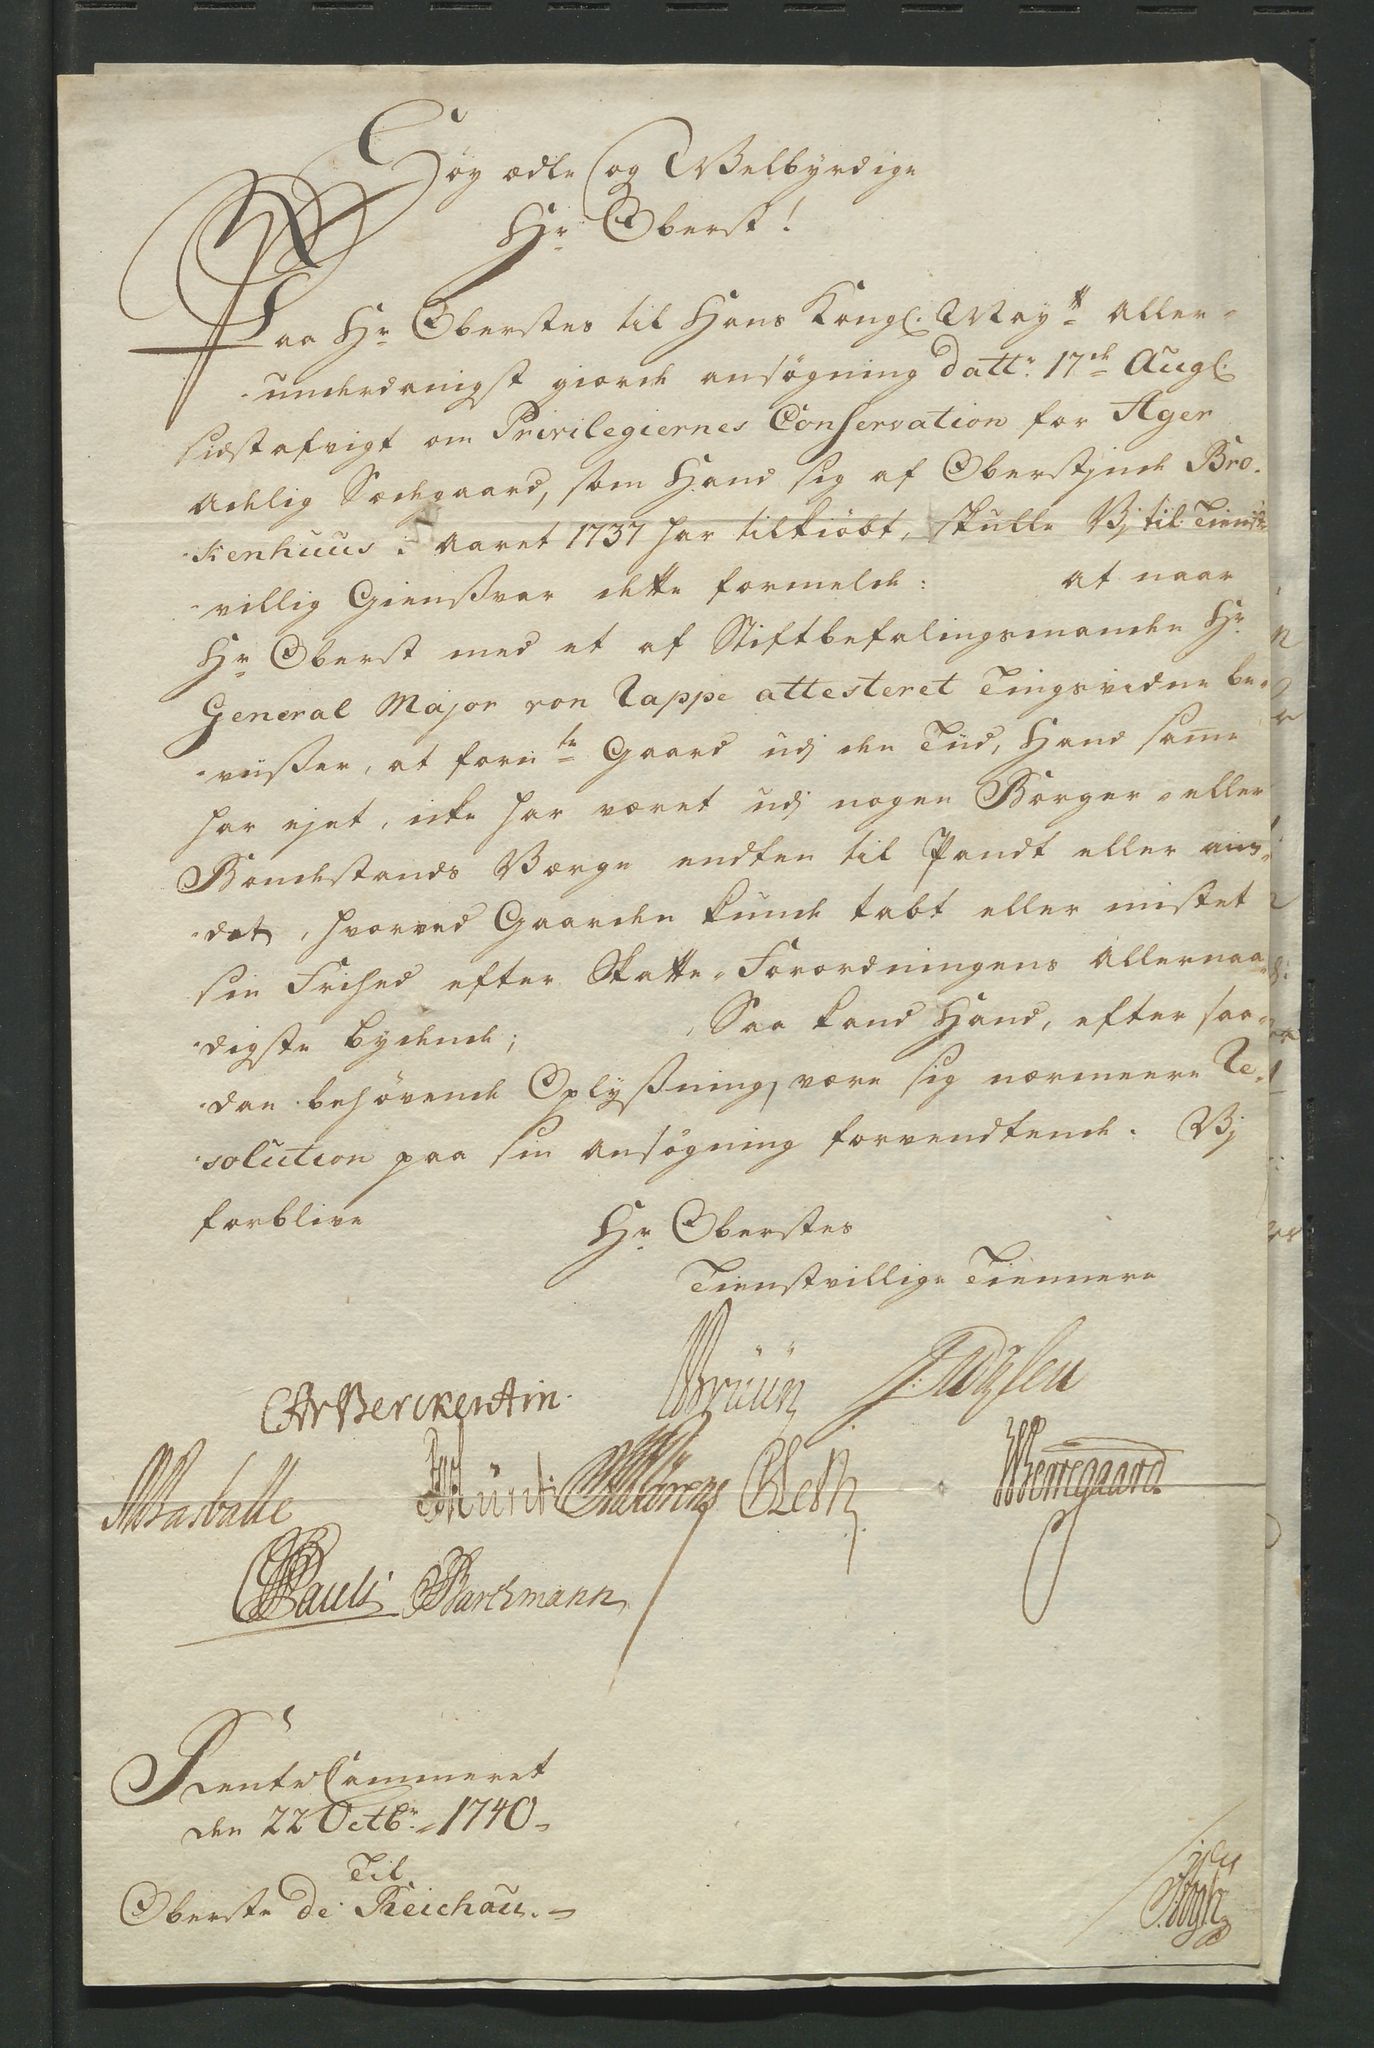 Høyædle og Welbyrdige
Hr Oberst!
Paa Hr Oberstes til Hans Kongl. Mayt Aller-
underdanigst giorde ansøgning Datt: 17de Augl.
sidstafvigt om Privilegiernes Conservation for Ager
Adelig Sædegaard, som Hand sig af Oberstinde Bro-
kenhuus i Aaret 1737 har tilkiøbt, skulle Vj til Tienst-
villig Gienßvar dette formelde: at naar
Hr Oberst med et af Stiftbefalingsmanden Hr
General Major von Rappe attesteret Tingsvidne be-
viißer, at forn te Gaard udj den Tiid, Hand same
har ejet, icke har været udj nogen Borger- eller
Bondestands Værge endten til Pandt eller an-
det, hvorved Gaarden kunde tabt eller mistet
sin Frihed efter Skatte-Forordningens Allernaa-
digste bydende; Saa kand Hand, efter saa-
dan behøvende Oplyßning, være sig nærmere Re-
solution paa sin ansøgning forvendtende. Vj
forblive
Hr Oberstes
Tienstvillige Tiennere
CA v Berckentin.
Brüün
Münt
CLeth
Werregaard
Pauli
Barchmann
Rente Cammeret
den 22 Octbr. 1740.
Til
Oberste de Reichau.